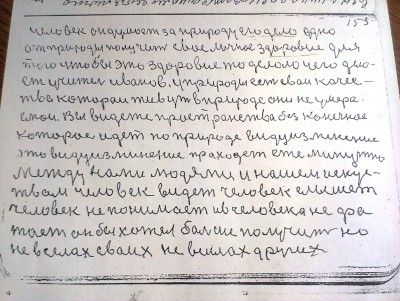 155
человек он думает за природу его дело одно
от природы получит свое личное здоровие для
того чтобы это здоровие то делало чего дает
учител иванов, у природы ест сваи качества
которые живут в природе они не умера
Вы видете пространства без конечное
которое идет по природе видуизминение
это видуизминение праходет
между нами людями и нашем искуством
человек видет человек слышет
человек не понимает и в человека не хватает
он бы хотел получит но
не в селах сваих не в силах других